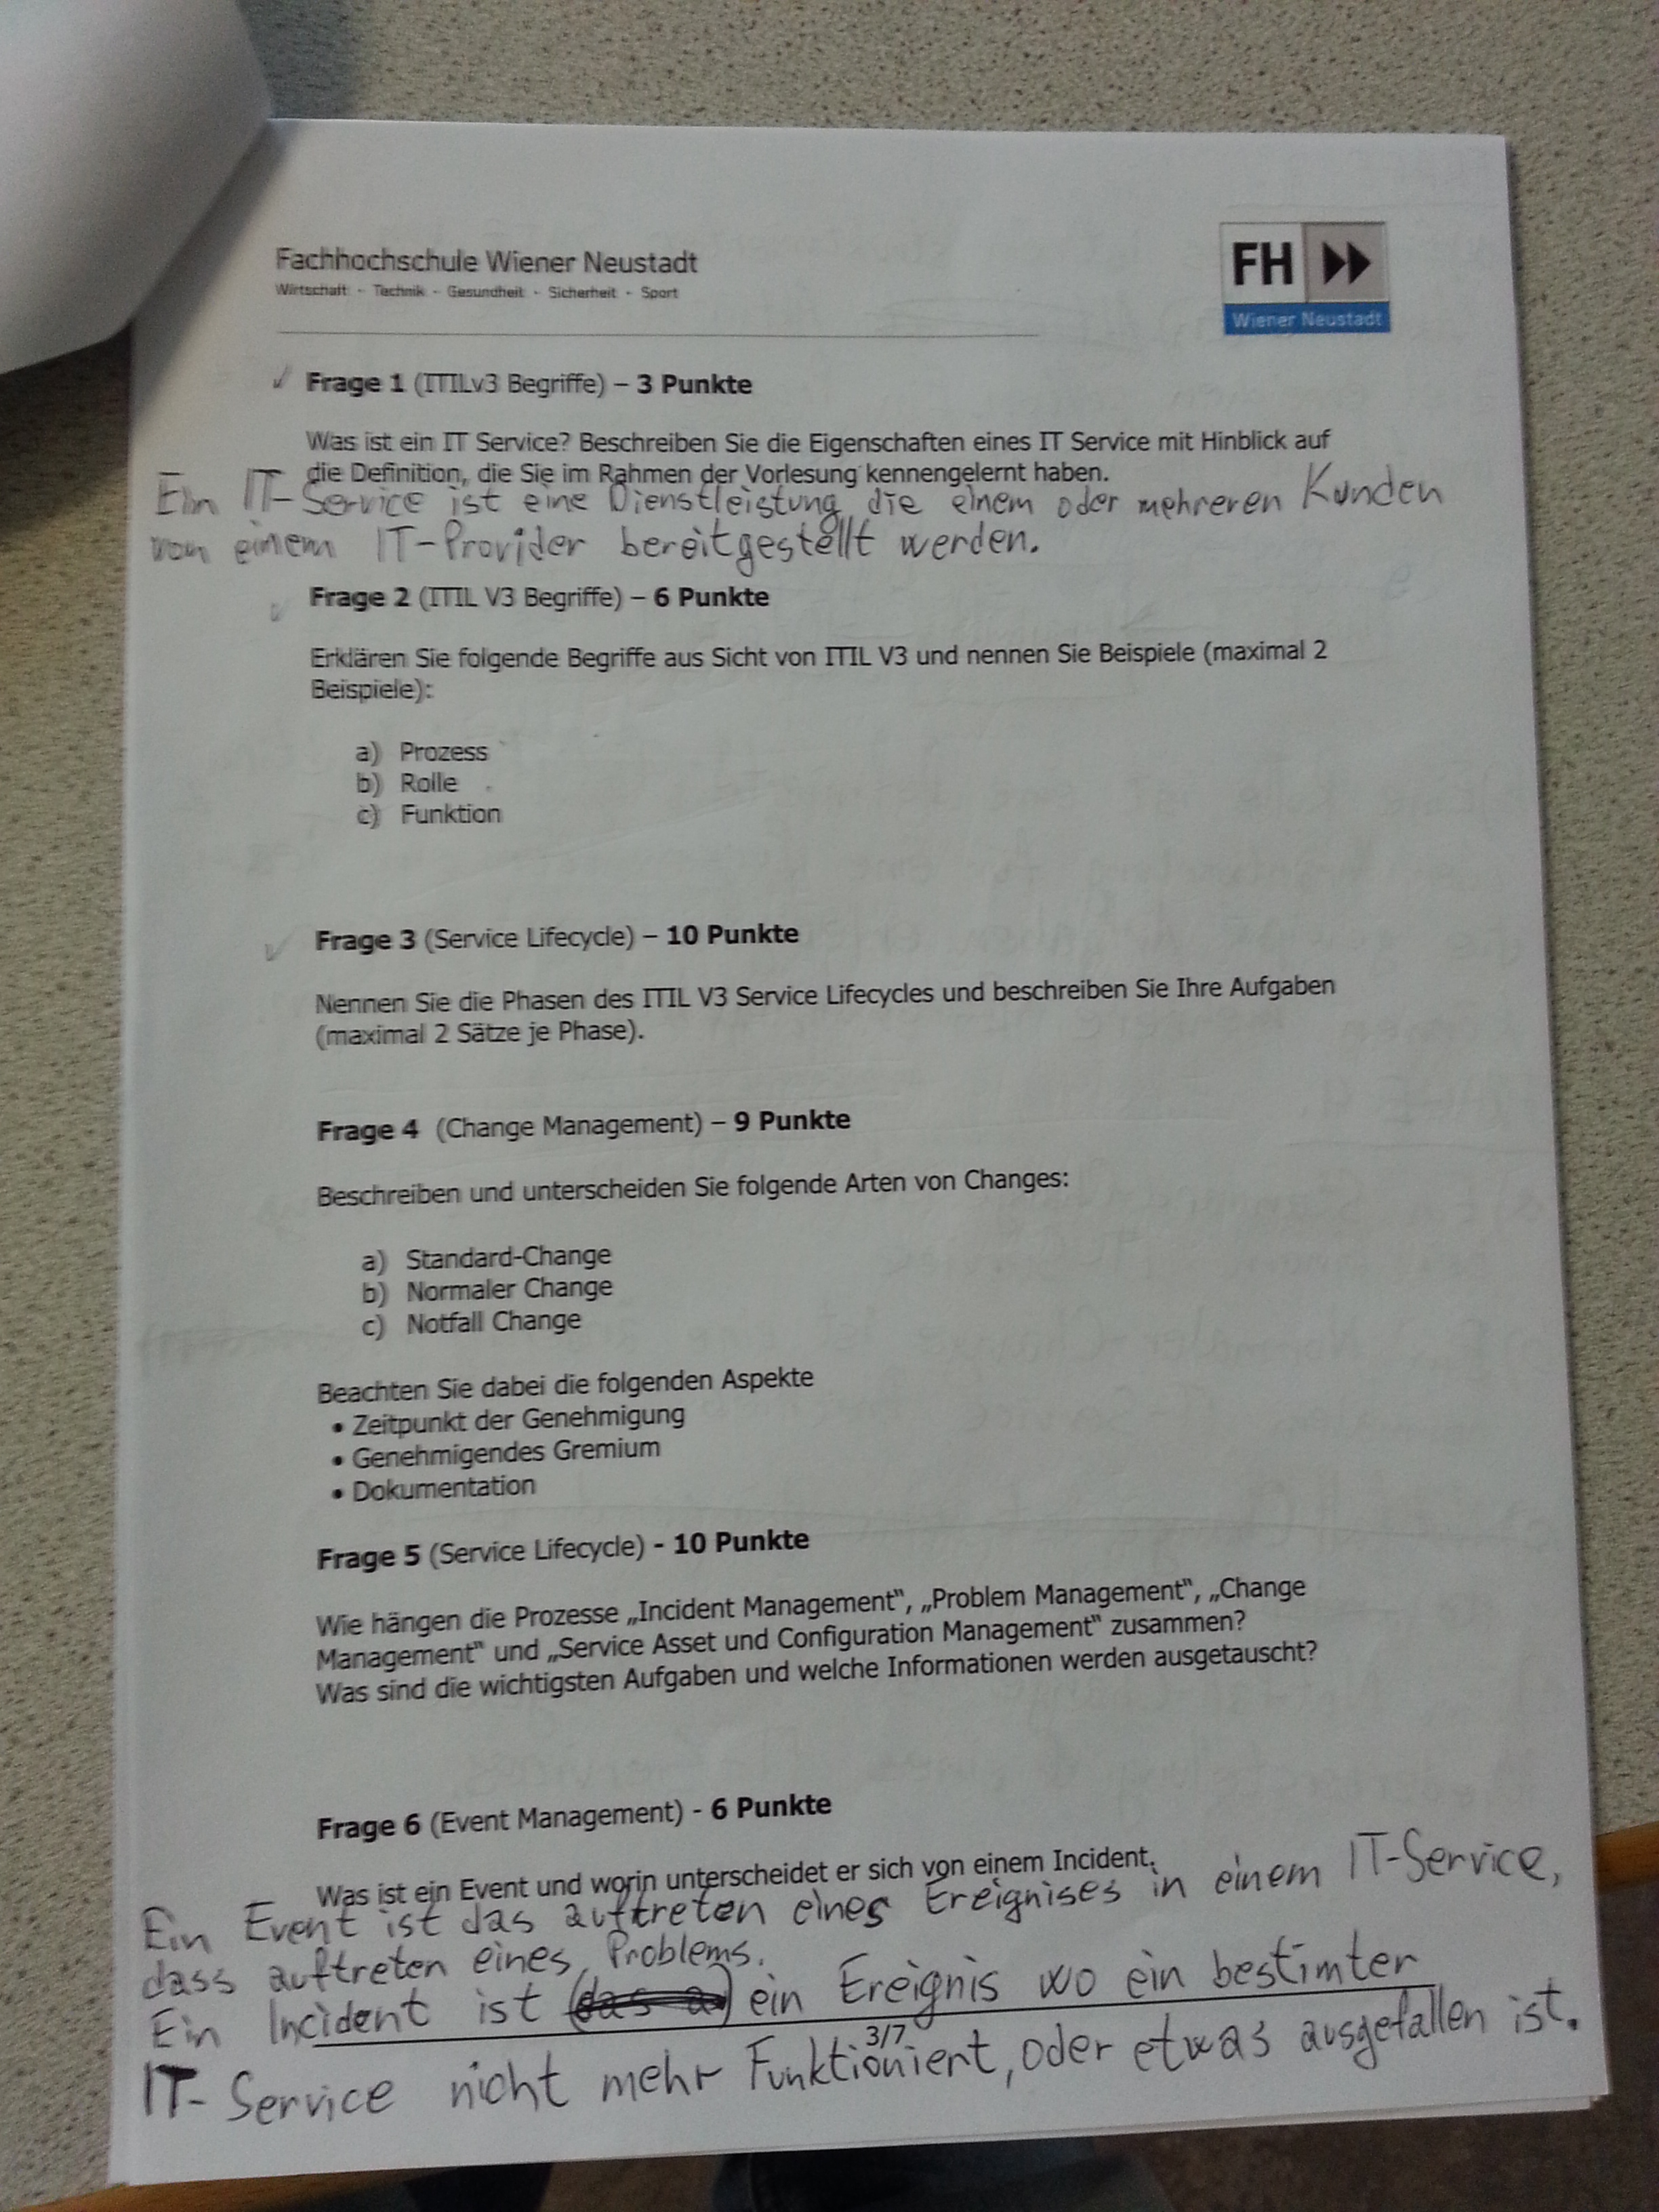 Fachhochschule Wiener Neustadt
Wirtschaft - Technik - Gesundheit - Sicherheit - Sport
FH
Wiener Neustadt
Frage 1 (ITILv3 Begriffe) – 3 Punkte
Was ist ein IT Service? Beschreiben Sie die Eigenschaften eines IT Service mit Hinblick auf
die Definition, die Sie im Rahmen der Vorlesung kennengelernt haben.
Ein IT-Service ist eine Dienstleistung, die einem oder mehreren Kunden
von einem IT-Provider bereitgestellt werden.
Frage 2 (ITIL V3 Begriffe) – 6 Punkte
Erklären Sie folgende Begriffe aus Sicht von ITIL V3 und nennen Sie Beispiele (maximal 2
Beispiele):
a) Prozess
b) Rolle
c) Funktion
Frage 3 (Service Lifecycle) – 10 Punkte
Nennen Sie die Phasen des ITIL V3 Service Lifecycles und beschreiben Sie Ihre Aufgaben
(maximal 2 Sätze je Phase).
Frage 4 (Change Management) – 9 Punkte
Beschreiben und unterscheiden Sie folgende Arten von Changes:
a) Standard-Change
b) Normaler Change
c) Notfall Change
Beachten Sie dabei die folgenden Aspekte
• Zeitpunkt der Genehmigung
• Genehmigendes Gremium
• Dokumentation
Frage 5 (Service Lifecycle) - 10 Punkte
Wie hängen die Prozesse „Incident Management“, „Problem Management“, „Change
Management“ und „Service Asset und Configuration Management“ zusammen?
Was sind die wichtigsten Aufgaben und welche Informationen werden ausgetauscht?
Frage 6 (Event Management) - 6 Punkte
Was ist ein Event und worin unterscheidet er sich von einem Incident.
Ein Event ist das auftreten eines Ereignises in einem IT-Service,
dass auftreten eines Problems.
Ein Incident ist (das a) ein Ereignis wo ein bestimter
3/7
IT-Service nicht mehr Funktioniert, oder etwas ausgefallen ist.